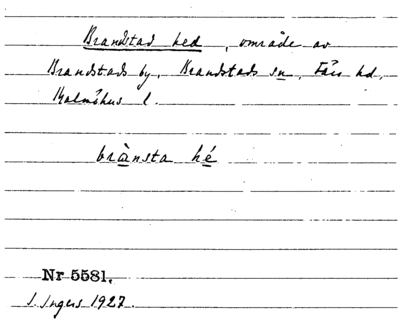 Brandstad hed, område av
Brandstads by, Brandstads sn, Färs hd,
Malmöhus l.
brànsta hé
Nr 5581.
I. Ingers 1927.